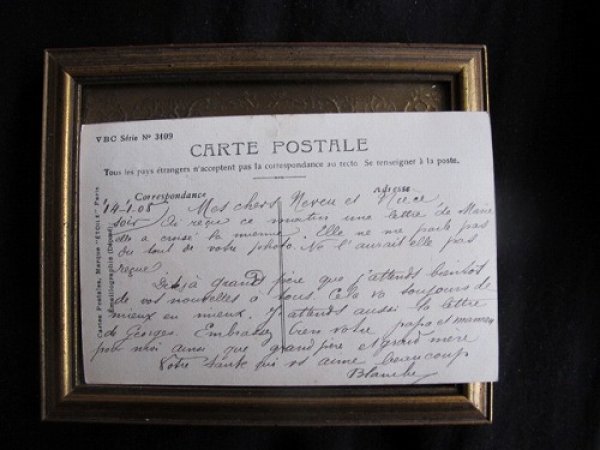 VBC Série Nº 3109
CARTE POSTALE
Tous les pays étrangers n'acceptent pas la correspondance au recto. Se renseigner à la poste.
Correspondance
Adresse
Cartes Postales, Marque "ÉTOILE" Paris
Émaillographie (Déposé)
14-1-08 Mes chers Neveu et Nièce
soir J'ai reçu ce matin une lettre de Marie
elle a croisé la mienne. Elle ne me parle pas
du tout de votre photo. Ne l'aurait elle pas
reçue
Dis à grand père que j'attends bientot
de vos nouvelles à tous. Cela va toujours de
mieux en mieux. J'attends aussi la lettre
de Georges. Embrassez bien votre papa et maman
pour moi ainsi que grand père et grand mère
Votre tante qui vs aime beaucoup
Blanche